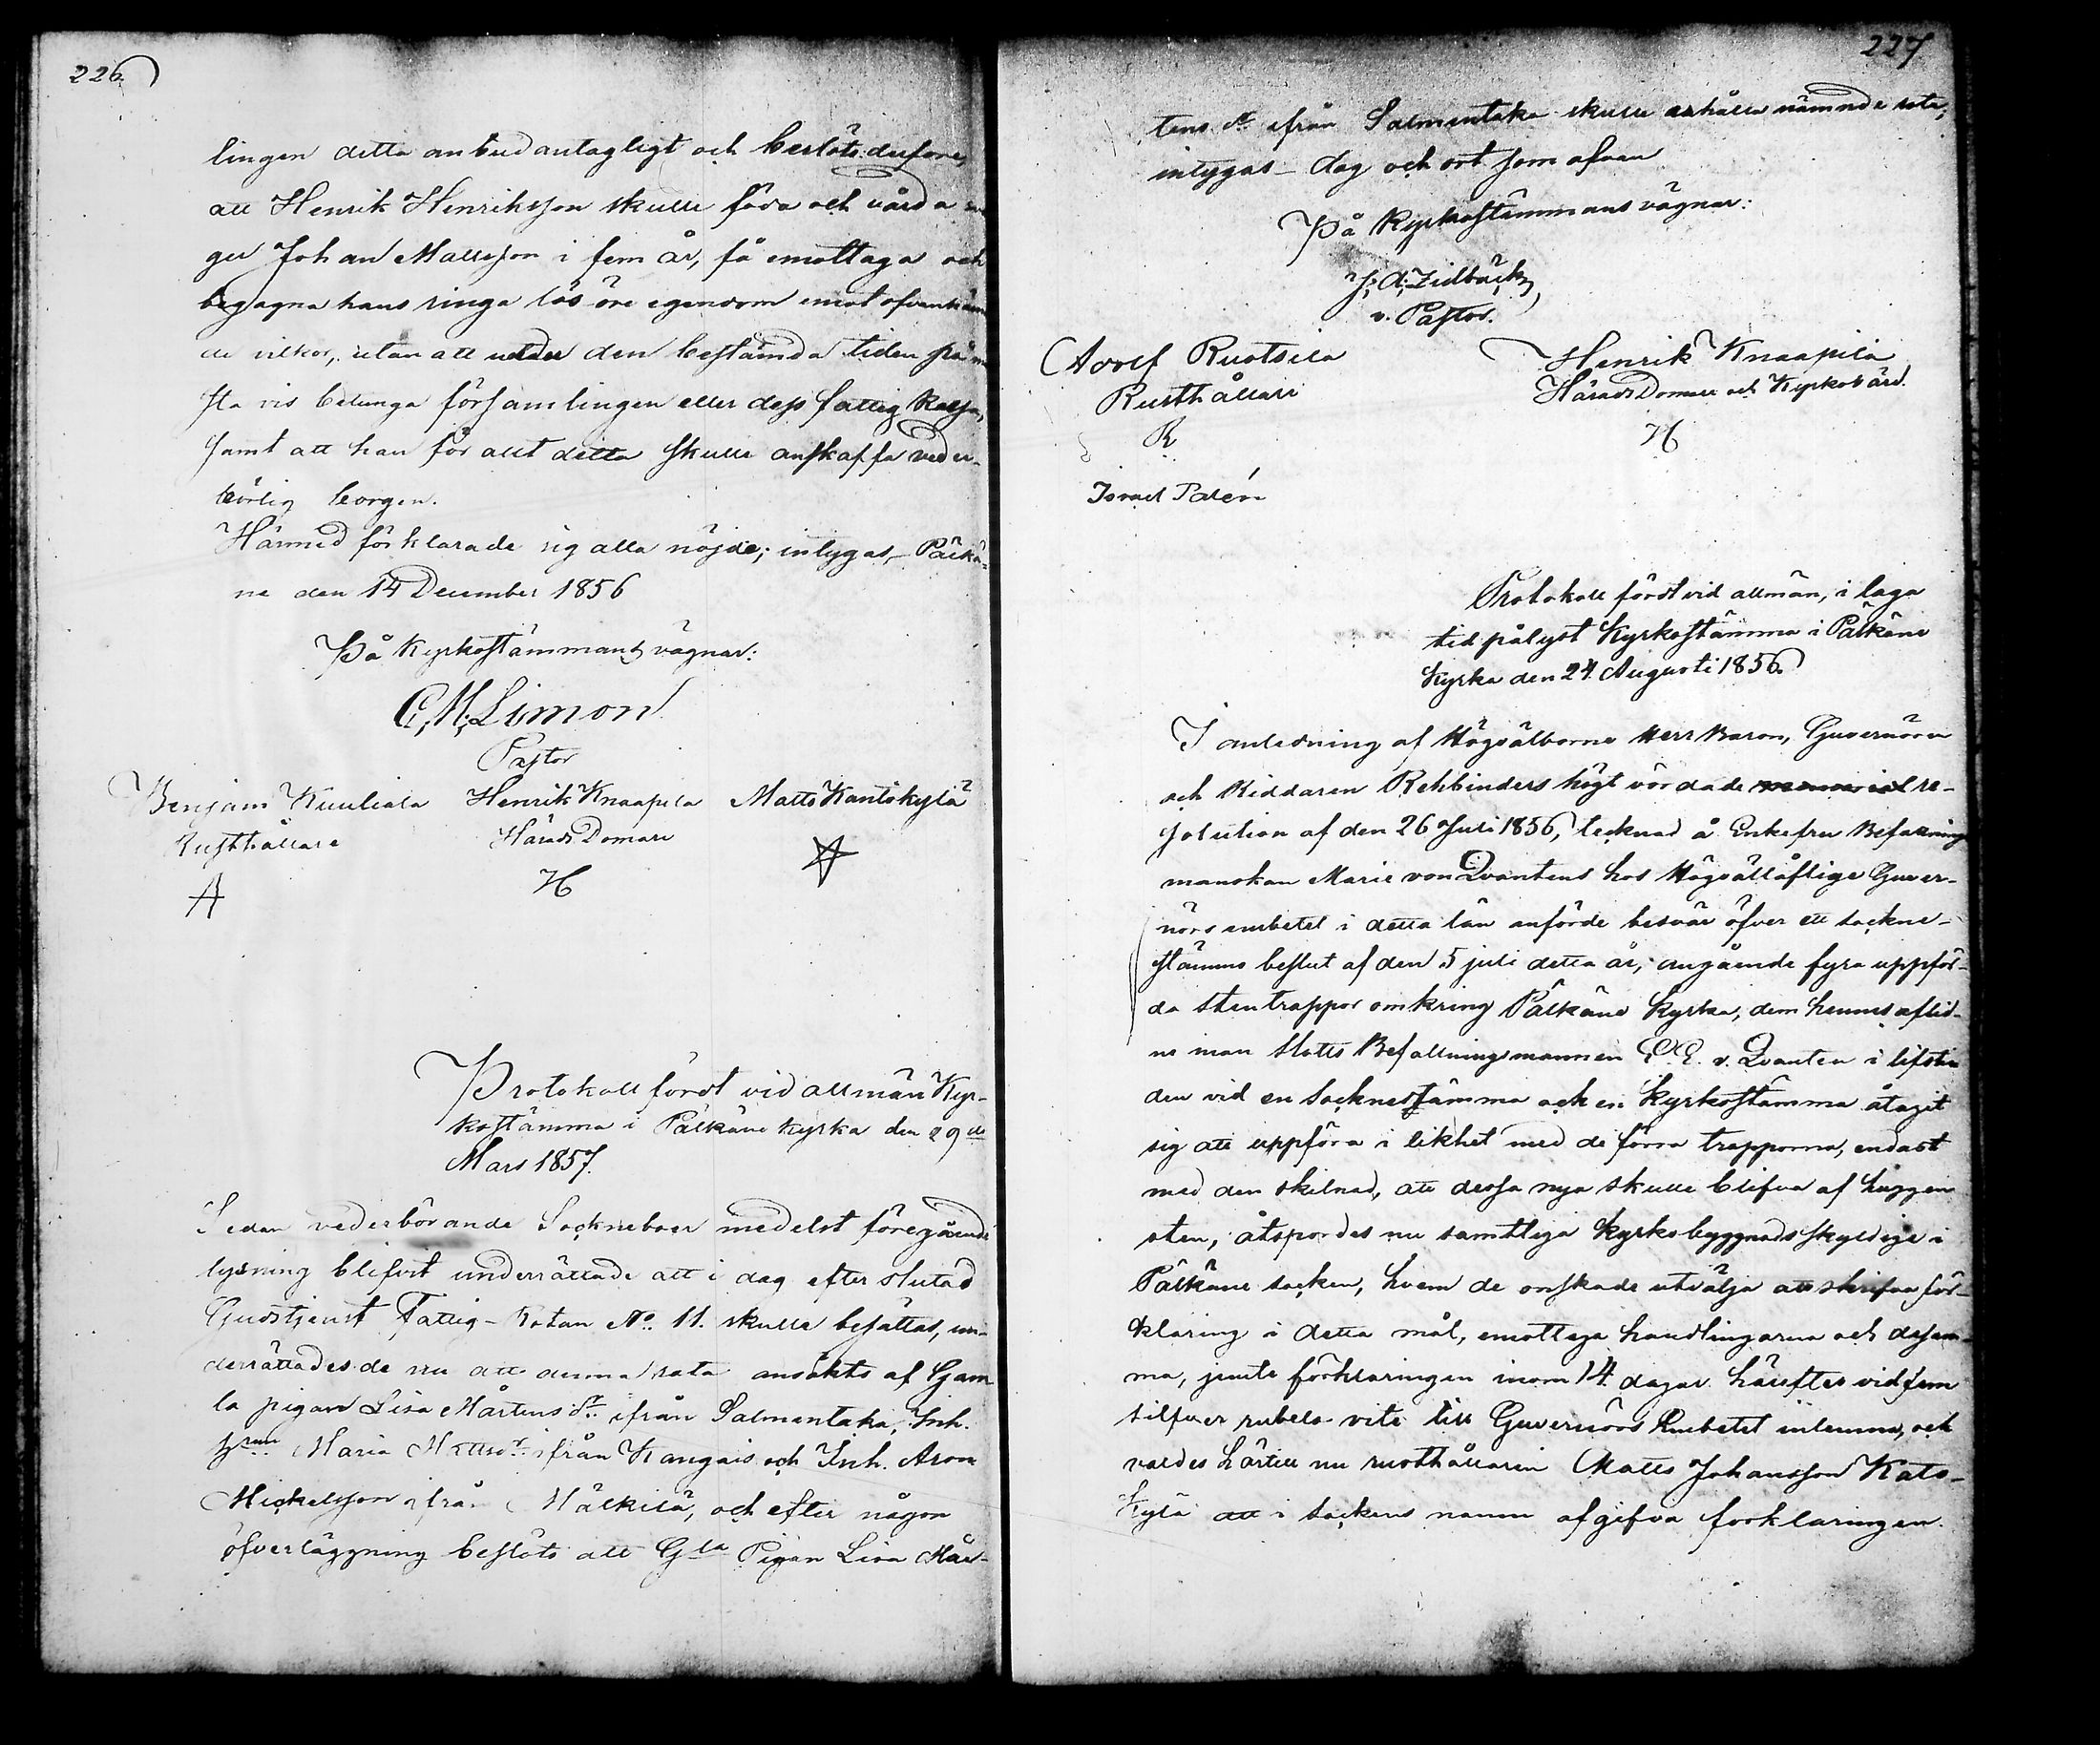 226.
lingen detta anbud antagligt och beslöts derföre,
att Henrik Henriksson skulle föda och vårda
ger Johan Mattsson i fem år, få emottaga och
begagna hans ringa lös öre egendom emot ofvannämn
de vilkor, utan att under den bestämda tiden på
sta vis betunga församlingen eller dess fattig kassa,
samt att han för allt detta skulle anskaffa veder-
börlig borgen.
Härmed förklarade sig alla nöjde; intygas, – Pälkä-
ne den 14 December 1856
På Kyrkostämmans vägnar:
C. M. Limon
Pastor
Benjam Kuuliala Henrik Knaapila Matts Kantokylä
Rusthållare Härads Domare
A H
Protokoll fördt vid allmän Kyr-
kostämma i Pälkäne kyrka den 29de
Mars 1857.
Sedan vederbörande Sockneboer medelst föregående
lysning blifvit underrättade att i dag efter slutad
Gudstjenst Fattig-Rotan No. 11. skulle besättas, un-
derrättades de nu att denna rota ansökts af Gam
la pigan Lisa Mårtensdr. ifrån Salmentaka, Inh.
Maria Mattsdr. ifrån Kangais och Inh. Aron
Mickelsson ifrån Mälkilä, och efter någon
öfverläggning beslöts att Gla Pigan Lisa Mår-
227.
tens dr. ifrån Salmentaka skulle erhålla nämnde rota,
intygas – dag och ort som ofvan
På Kyrkostämmans vägnar:
J. A. Zidbäck,
v. Pastor.
Adolf Ruotsila Henrik Knaapila
Rusthållare Härads Domare och Kyrkovärd.
R H
Israel Palén
Protokoll fördt vid allmän, i laga
tid pålyst Kyrkostämma i Pälkäne
Kyrka den 24. Augusti 1856.
I anledning af Högvälborne Herr Baron, Guvernören
och Riddaren Rehbinders högt vördade memorial re-
solution af den 26 Juli 1856, tecknad å Enkefru Befallnings
manskan Marie von Qvantens hos Högvällåflige Guver-
nörs embetet i detta län anförde besvär öfver ett sockne-
stämmo beslut af den 5 juli detta år, angående fyra uppför-
da stentrappor omkring Pälkäne Kyrka, dem hennes aflid-
ne man Slotts Befallningsmannen E. E. v. Qvanten i lifsti
den vid en Socknestämma och en Kyrkostämma åtagit
sig att uppföra i likhet med de förra trapporna, endast
med den skilnad, att dessa nya skulle blifva af huggen
sten, åtspordes nu samtliga Kyrkobyggnads skyldige i
Pälkäne socken, hvem de önskade utvälja att skrifva för-
klaring i detta mål, emottaga handlingarna och desam-
ma, jemte förklaringen inom 14. dagar härefter vid fem
silfver rubels vite till Guvernörs Embetet inlemna, och
valdes härtill nu rusthållaren Matts Johansson Kato-
Kylä att i Sockens namn afgifva förklaringen.